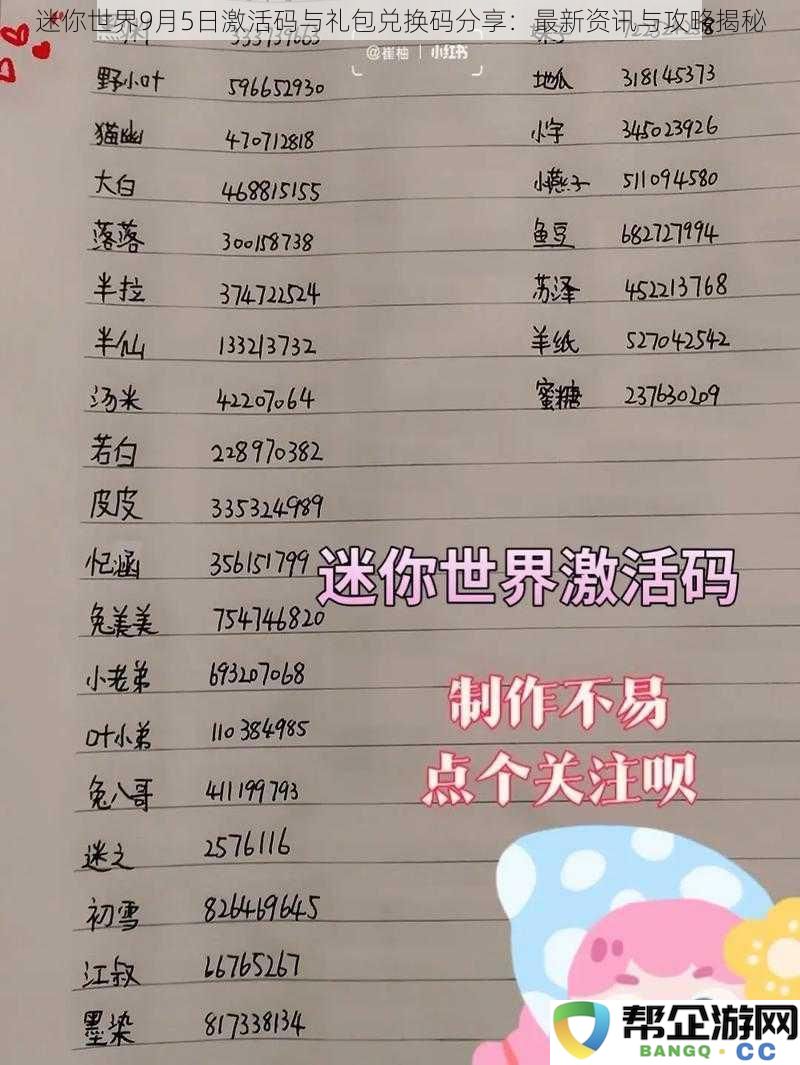 迷你世界9月5日激活码与礼包兑换码分享：最新资讯与攻略揭秘
@崔柚 | 小红书
野小叶 596652930
猫幽 470712818
大白 468815155
落落 300158738
半拉 374722524
半仙 133213732
汤米 42207064
若白 228970382
皮皮 335324989
忆涵 356151799
兔美美 754746820
小老弟 693207068
叶小弟 110384985
兔八哥 411199793
迷之 2576116
初雪 826469645
江叔 66765267
墨染 817338134
地瓜 318145373
小字 345023926
小燕子 511094580
鱼豆 682727994
苏泽 452213768
羊纸 527042542
蜜糖 237630209
迷你世界激活码
制作不易
点个关注呗
帮企游网
BANGQ·CC